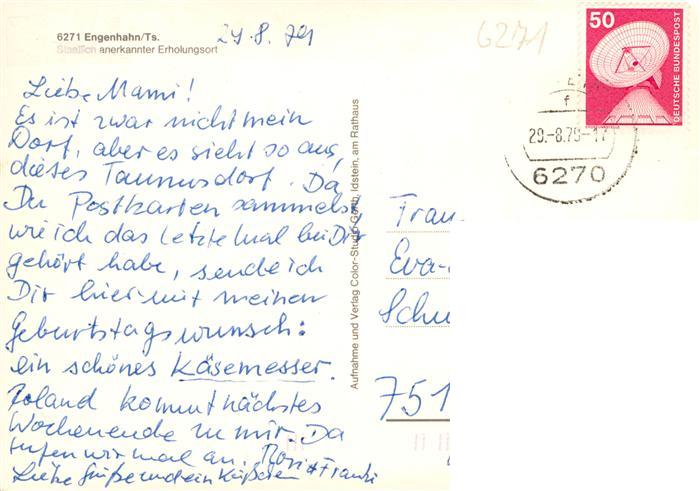 6271 Engenhahn/Ts.
Staatlich anerkannter Erholungsort
29.8.79
6271
Liebe Mami!
Es ist zwar nicht mein
Dorf, aber es sieht so aus,
dieses Taunusdorf. Da
Du Postkarten sammelst,
wie ich das letzte Mal bei Dir
gehört habe, sende ich
Dir hier mit meinen
Geburtstagswunsch:
ein schönes Käsemesser.
Roland kommt nächstes
Wochenende zu mir. Da
rufen wir mal an.
Liebe Grüße und ein Küßchen
Aufnahme und Verlag Color-Studio Idstein, am Rathaus
50
DEUTSCHE BUNDESPOST
29.-8.79-17
6270
Frau
Eva-
Schu
751